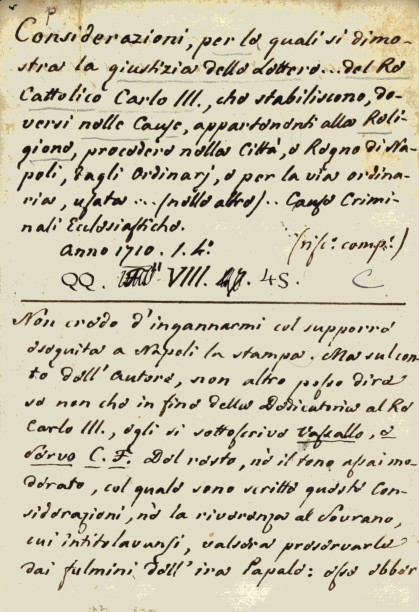 Considerazioni, per le quali si dimo-
stra la giustizia delle Lettere... del Re
Cattolico Carlo III., che stabiliscono, do-
versi nelle Cause, appartenenti alla Reli-
gione, procedere nella Città, e Regno di Na-
poli, dagli Ordinarj, e per la via ordina-
ria, usata ... (nelle altre).. Cause Crimi-
nali Ecclesiastiche.
Anno 1710. in 4.°
QQ. VIII. 48.
C
Non credo d'ingannarmi col supporre
eseguita a Napoli la stampa. Ma sul con-
to dell'Autore, non altro posso dire
se non che in fine della Dedicatoria al Re
Carlo III., egli si sottoscrive Vassallo, e
Servo C. F. Del resto, nè il tono assai mo-
derato, col quale sono scritte queste Con-
siderazioni, nè la riverenza al Sovrano,
cui intitolavansi, valsero preservarle
dai fulmini dell'ira Papale: esse ebber